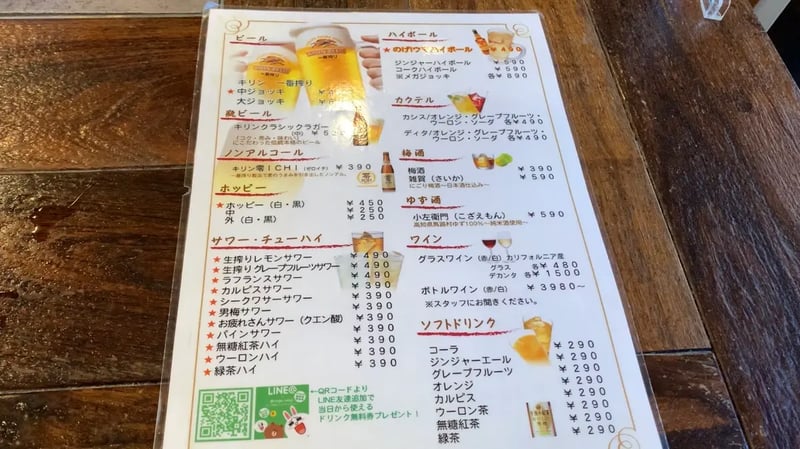 ビール
キリン 一番搾り
★中ジョッキ
大ジョッキ
瓶ビール
キリンクラシックラガー
(中)
ノンアルコール
キリン零ICHI（ゼロイチ） ¥390
ホッピー
★ホッピー（白・黒） ¥450
中 ¥250
外（白・黒） ¥250
サワー・チューハイ
★生搾りレモンサワー ¥490
★生搾りグレープフルーツサワー ¥490
★ラフランスサワー ¥390
★カルピスサワー ¥390
★シークワサーサワー ¥390
★男梅サワー ¥390
★お疲れさんサワー（クエン酸） ¥390
★パインサワー ¥390
★無糖紅茶ハイ ¥390
★ウーロンハイ ¥390
★緑茶ハイ ¥390
LINE@
←QRコードより
LINE友達追加で
当日から使える
ドリンク無料券プレゼント！
ハイボール
ハイボール ¥490
ジンジャーハイボール ¥590
コークハイボール ¥590
※メガジョッキ 各¥890
カクテル
カシス/オレンジ・グレープフルーツ・
ウーロン・ソーダ 各¥490
ディタ/オレンジ・グレープフルーツ・
ウーロン・ソーダ 各¥490
梅酒
梅酒 ¥390
雑賀（さいか） ¥590
にごり梅酒～日本酒仕込み～
ゆず酒
小左衛門（こざえもん） ¥590
高知県馬路村ゆず100%～純米酒使用～
ワイン
グラスワイン（赤/白）カリフォルニア産
グラス 各¥480
デカンタ 各¥1500
ボトルワイン（赤/白） ¥3980～
※スタッフにお聞きください。
ソフトドリンク
コーラ ¥290
ジンジャーエール ¥290
グレープフルーツ ¥290
オレンジ ¥290
カルピス ¥290
ウーロン茶 ¥290
無糖紅茶 ¥290
緑茶 ¥290